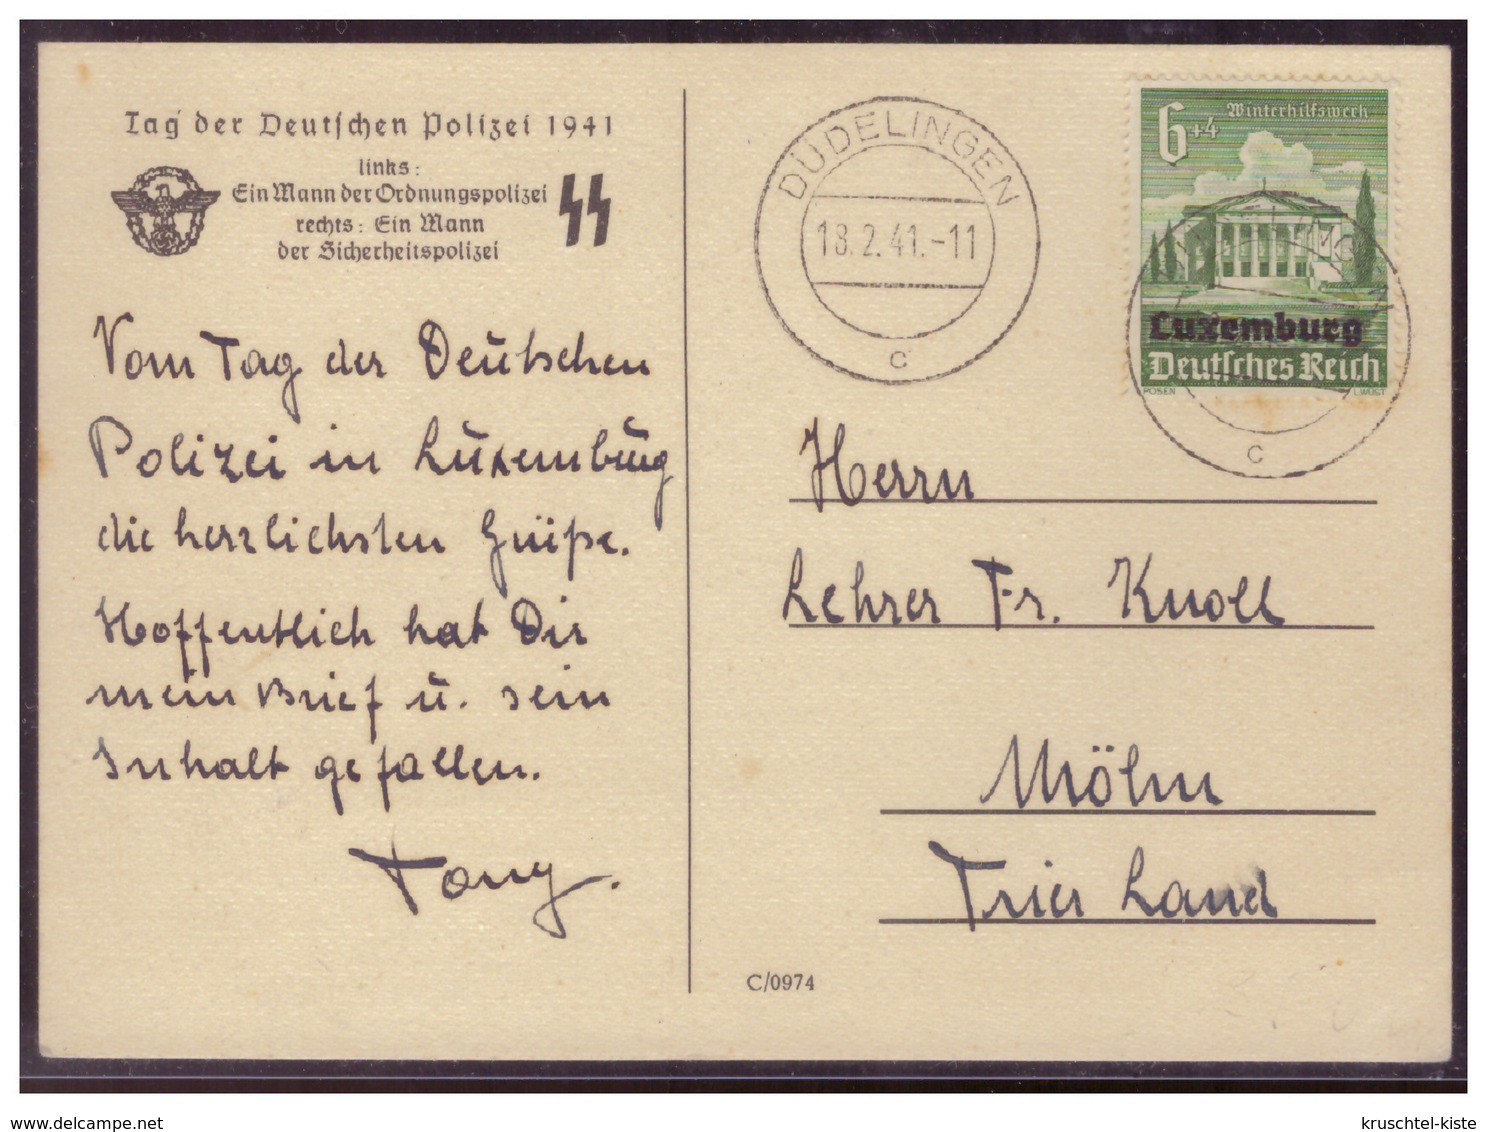 Tag der Deutschen Polizei 1941
links:
Ein Mann der Ordnungspolizei
rechts: Ein Mann
der Sicherheitspolizei
Vom Tag der Deutschen
Polizei in Luxemburg
die herzlichsten Grüße.
Hoffentlich hat Dir
mein Brief u. sein
Inhalt gefallen.
Tony.
DÜDELINGEN
18.2.41.-11
c
6+4 Winterhilfswerk
Luxemburg
Deutsches Reich
POSEN
c
Herrn
Lehrer Fr. Knoll
Möhn
Trier Land
C/0974
www.delcampe.net
kruschtel-kiste